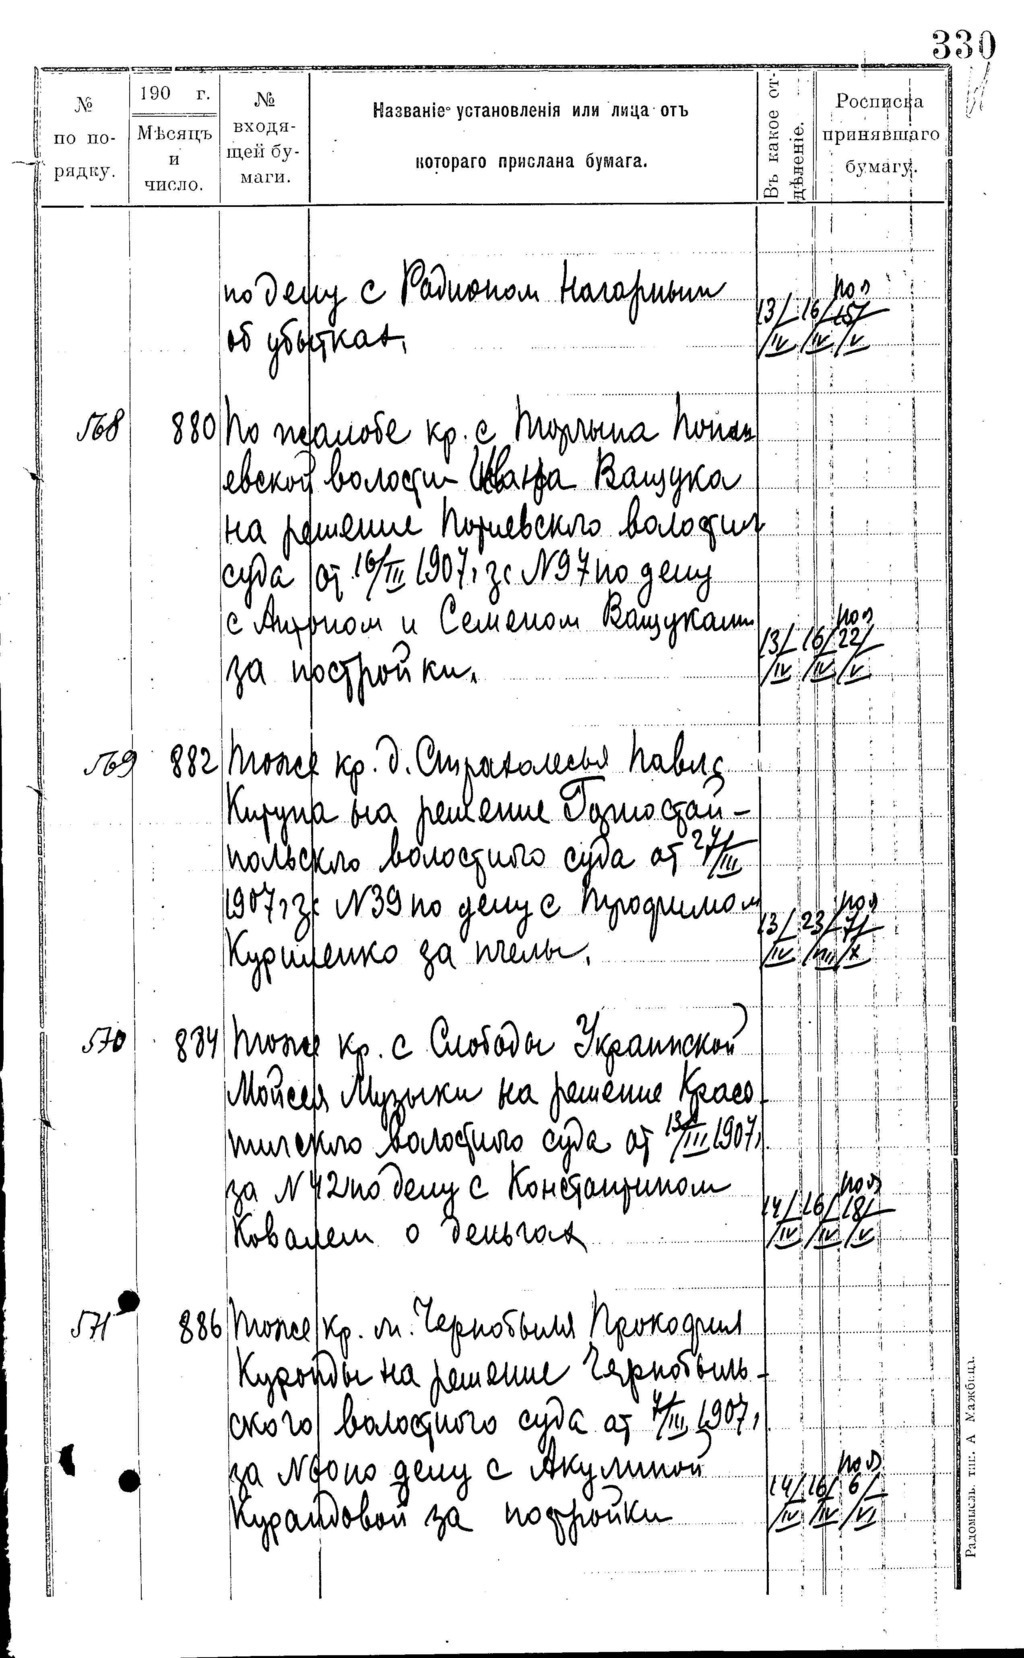 330
№
по по-
рядку.
190 г.
Мѣсяцъ
и
число.
№
входя-
щей бу-
маги.
Названіе установленія или лица отъ
котораго прислана бумага.
Въ какое от-
дѣленіе.
Росписка
принявшаго
бумагу.
по делу с Радионом Нагорным
об убытках.
13/IV 16/IV /V
568 880 По жалобе кр. с.
евской волости Ивана Ващука
на решение Потиевскго волостнг
суда от 16/III 1907 г за N97 по делу
с Антоном и Семеном Ващуками
за постройки.
13/IV 16/IV 22/V
569 882 Тоже кр. д. Страхолесья Павла
на решение Горностай-
польскго волостного суда от 27/III
1907 г за N39 по делу с Трофимом
Куриленко за пчелы.
13/IV 23/VIII 7/X
570 884 Тоже кр. с Слободы Украинской
Мойсея Музыки на решение Красо
тилскго волостного суда от 13/III 1907 г
за N42 по делу с Константином
Ковалем о деньгах
14/IV 16/IV 18/V
571 886 Тоже кр. м. Чернобыля Прокофия
на решение Чернобыль-
ского волостного суда от 7/III 1907 г
за N60 по делу с Акулиной
Курандовой за постройки
14/IV 16/IV 6/VI
Радомысль, тип. А Мажбица.